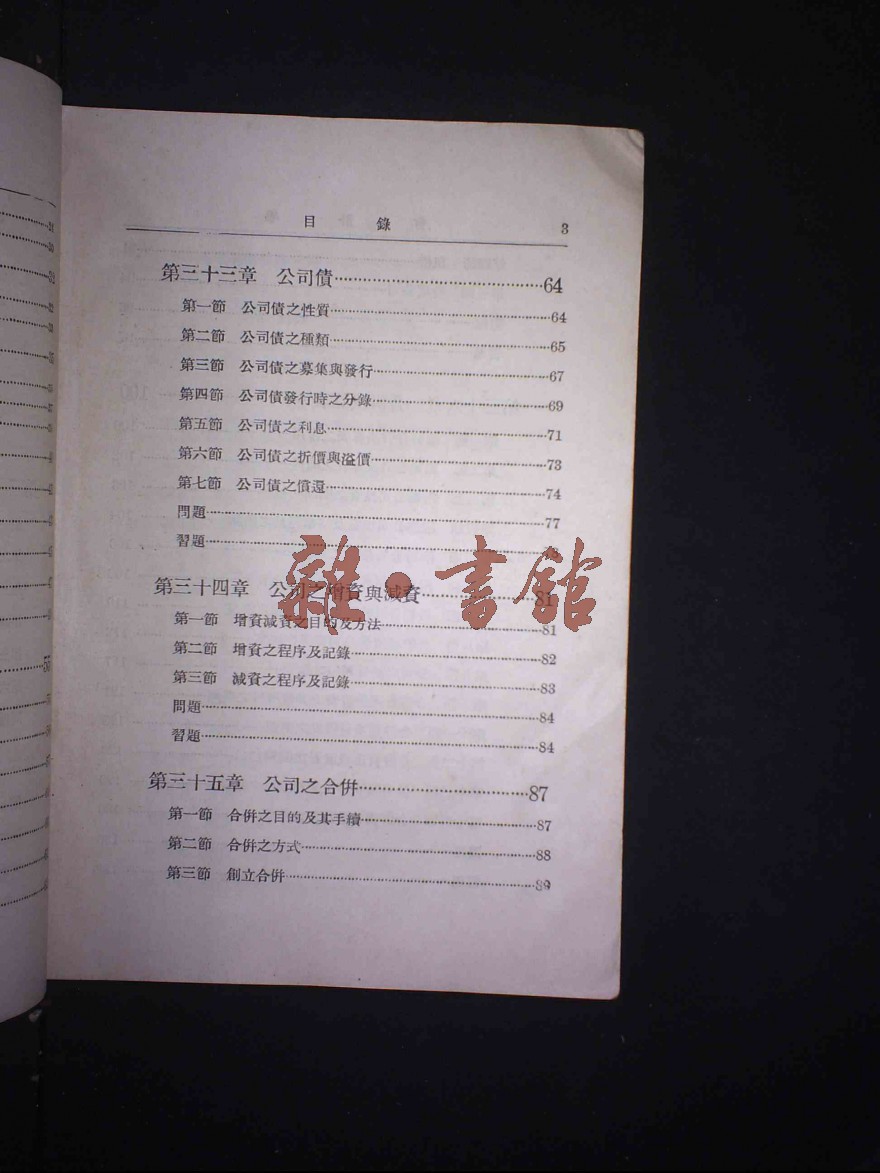 目錄 3
第三十三章 公司債……64
第一節 公司債之性質……64
第二節 公司債之種類……65
第三節 公司債之募集與發行……67
第四節 公司債發行時之分錄……69
第五節 公司債之利息……71
第六節 公司債之折價與溢價……73
第七節 公司債之償還……74
問題……77
習題……
雜·書館
第三十四章 公司之增資與減資……81
第一節 增資減資之目的及方法……81
第二節 增資之程序及記錄……82
第三節 減資之程序及記錄……83
問題……84
習題……84
第三十五章 公司之合倂……87
第一節 合倂之目的及其手續……87
第二節 合倂之方式……88
第三節 創立合倂……89